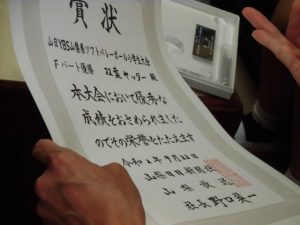 賞状
山日YBS山梨県ソフトバレーボール小学生大会
Fパート優勝 双葉ヤッター 殿
本大会において優秀な
成績をおさめられました
のでその栄誉をたたえます
令和2年9月22日
山梨日日新聞社
山梨放送
社長 野口英一